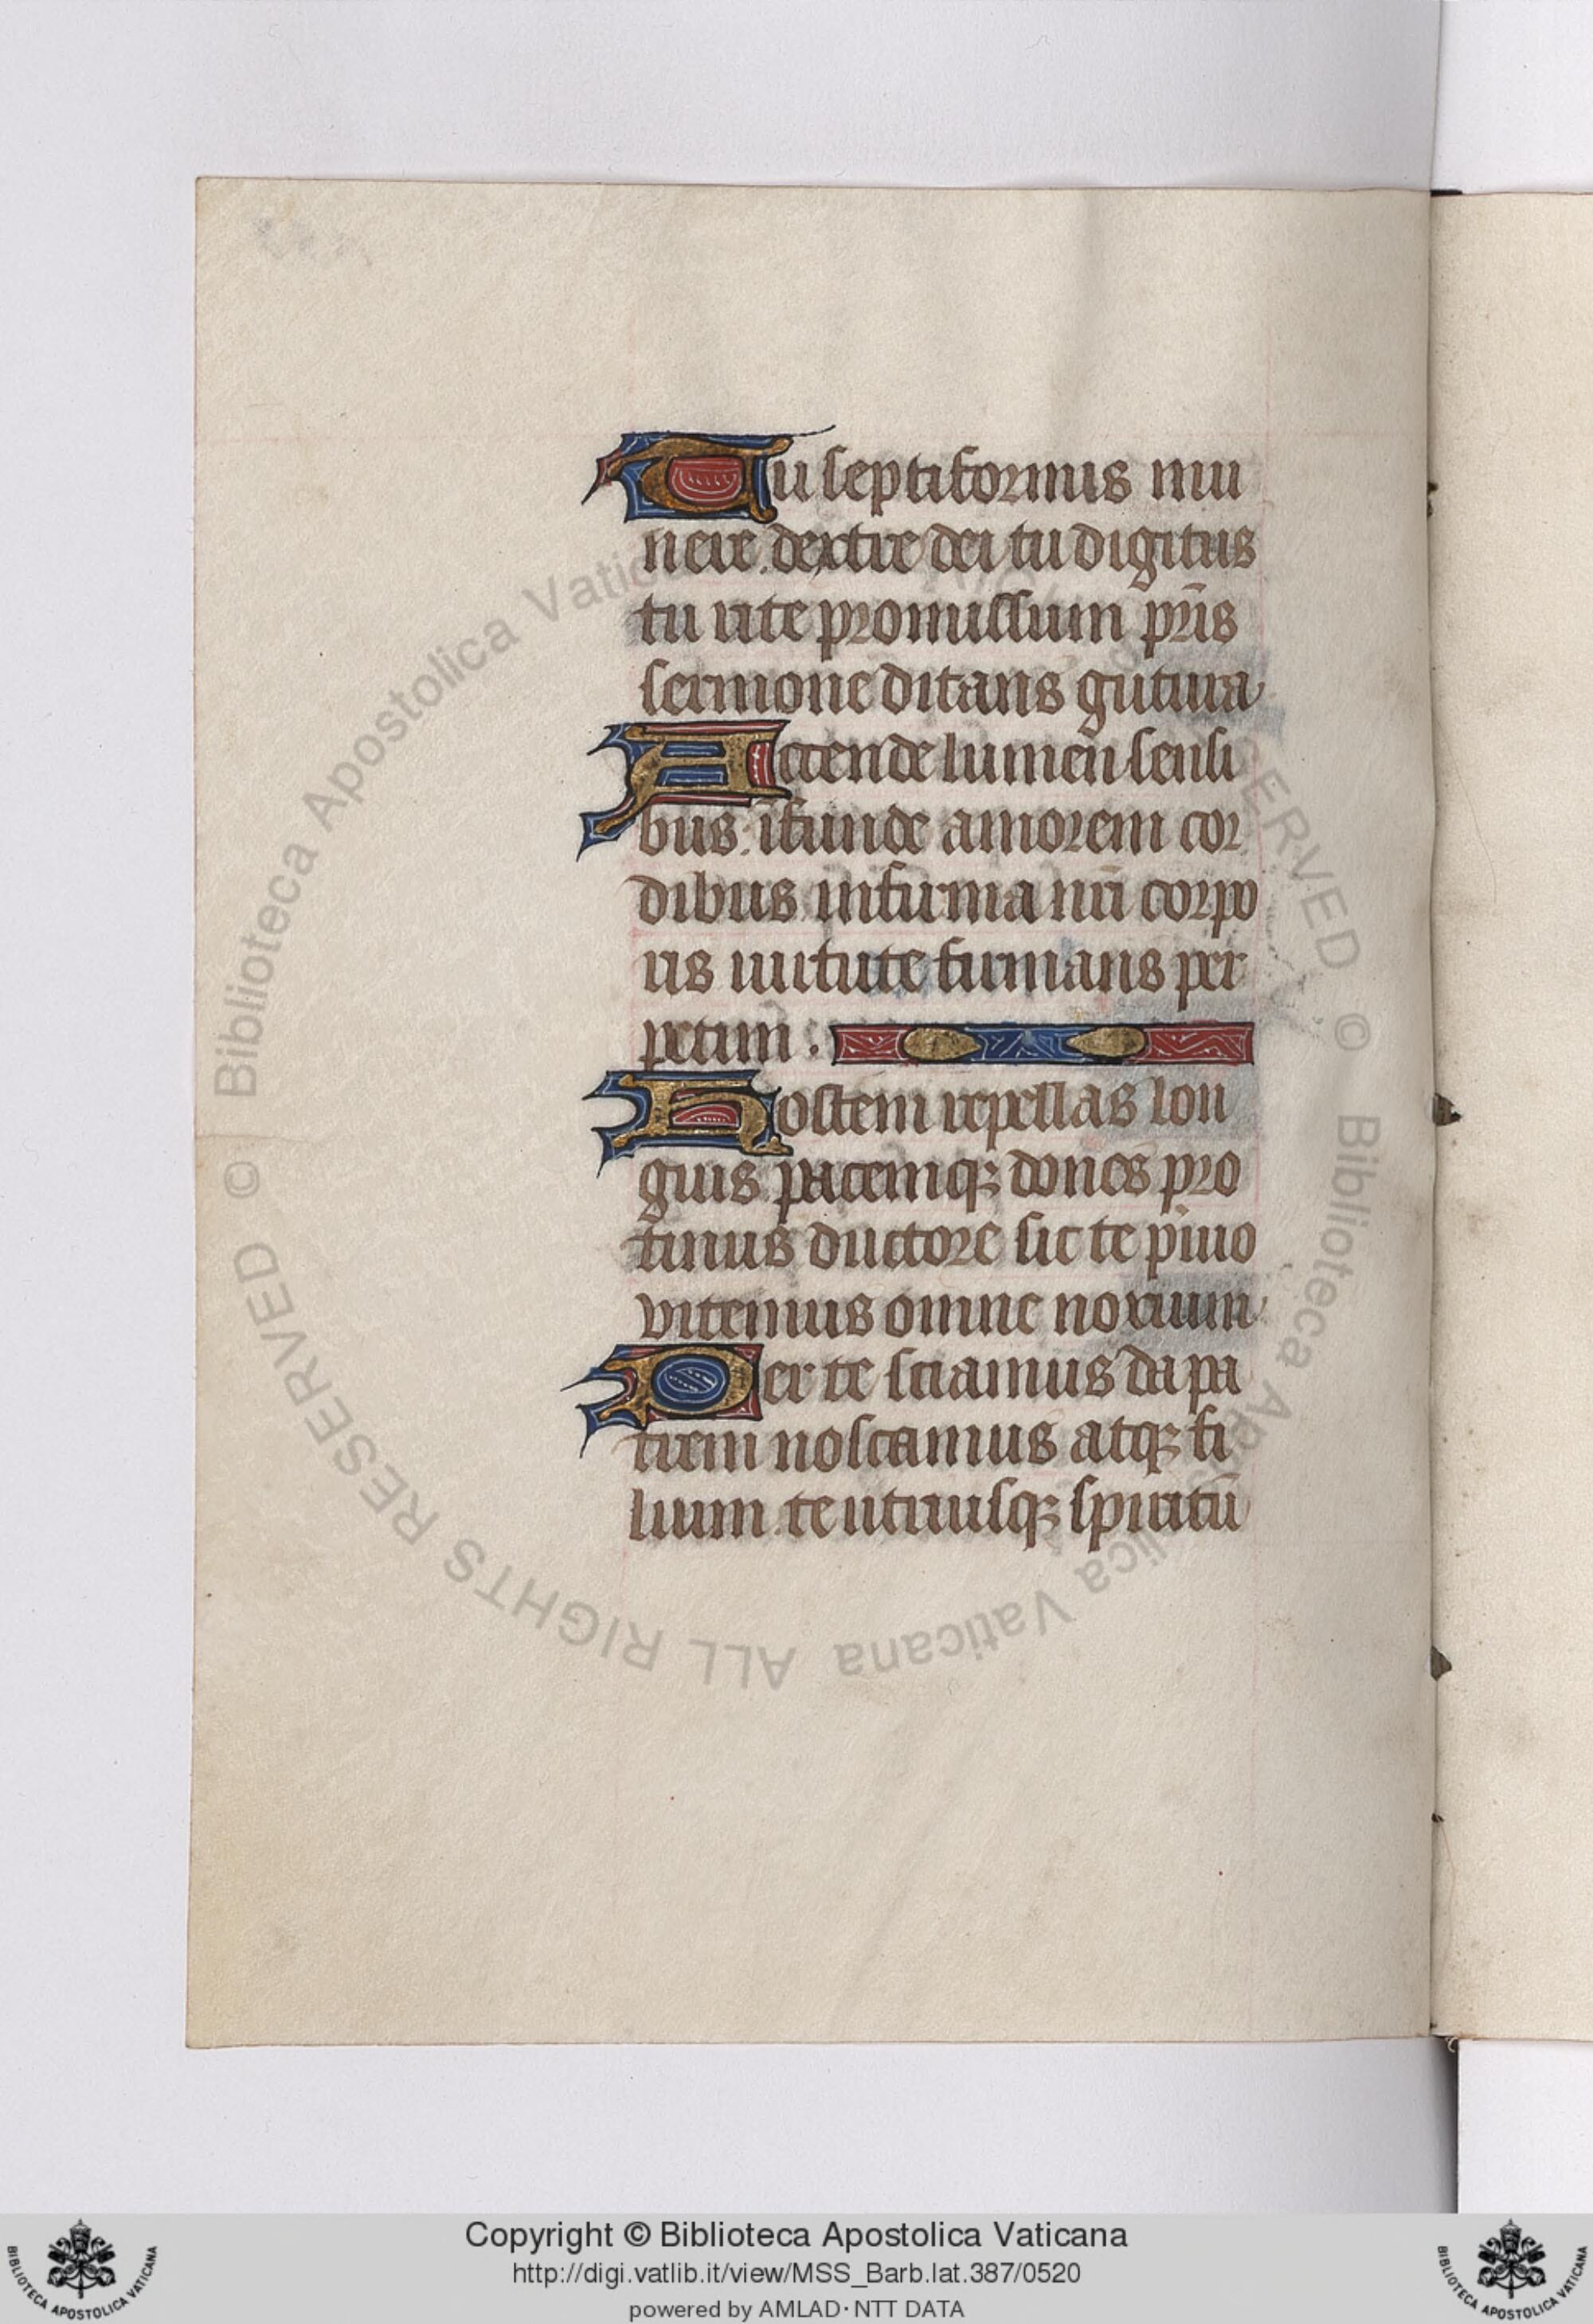 Tu septiformis mu
nere. dextre dei tu digitus
tu rite promissum pr̄is
sermone ditans gutura
Accende lumen sensi
bus: īfunde amorem cor
dibus. infirma nr̄i corpo
ris uirtute firmans per
petim.
Hostem repellas lon
gius. pacemqꝫ dones pro
tinus ductore sic te p̍uio
vitemus omne noxium
Per te sciamus da pa
trem noscamus atqꝫ fi
lium. te utriusqꝫ spiritū
© Biblioteca Apostolica Vaticana ALL RIGHTS RESERVED
Copyright © Biblioteca Apostolica Vaticana
http://digi.vatlib.it/view/MSS_Barb.lat.387/0520
powered by AMLAD·NTT DATA
BIBLIOTECA APOSTOLICA VATICANA
BIBLIOTECA APOSTOLICA VATICANA